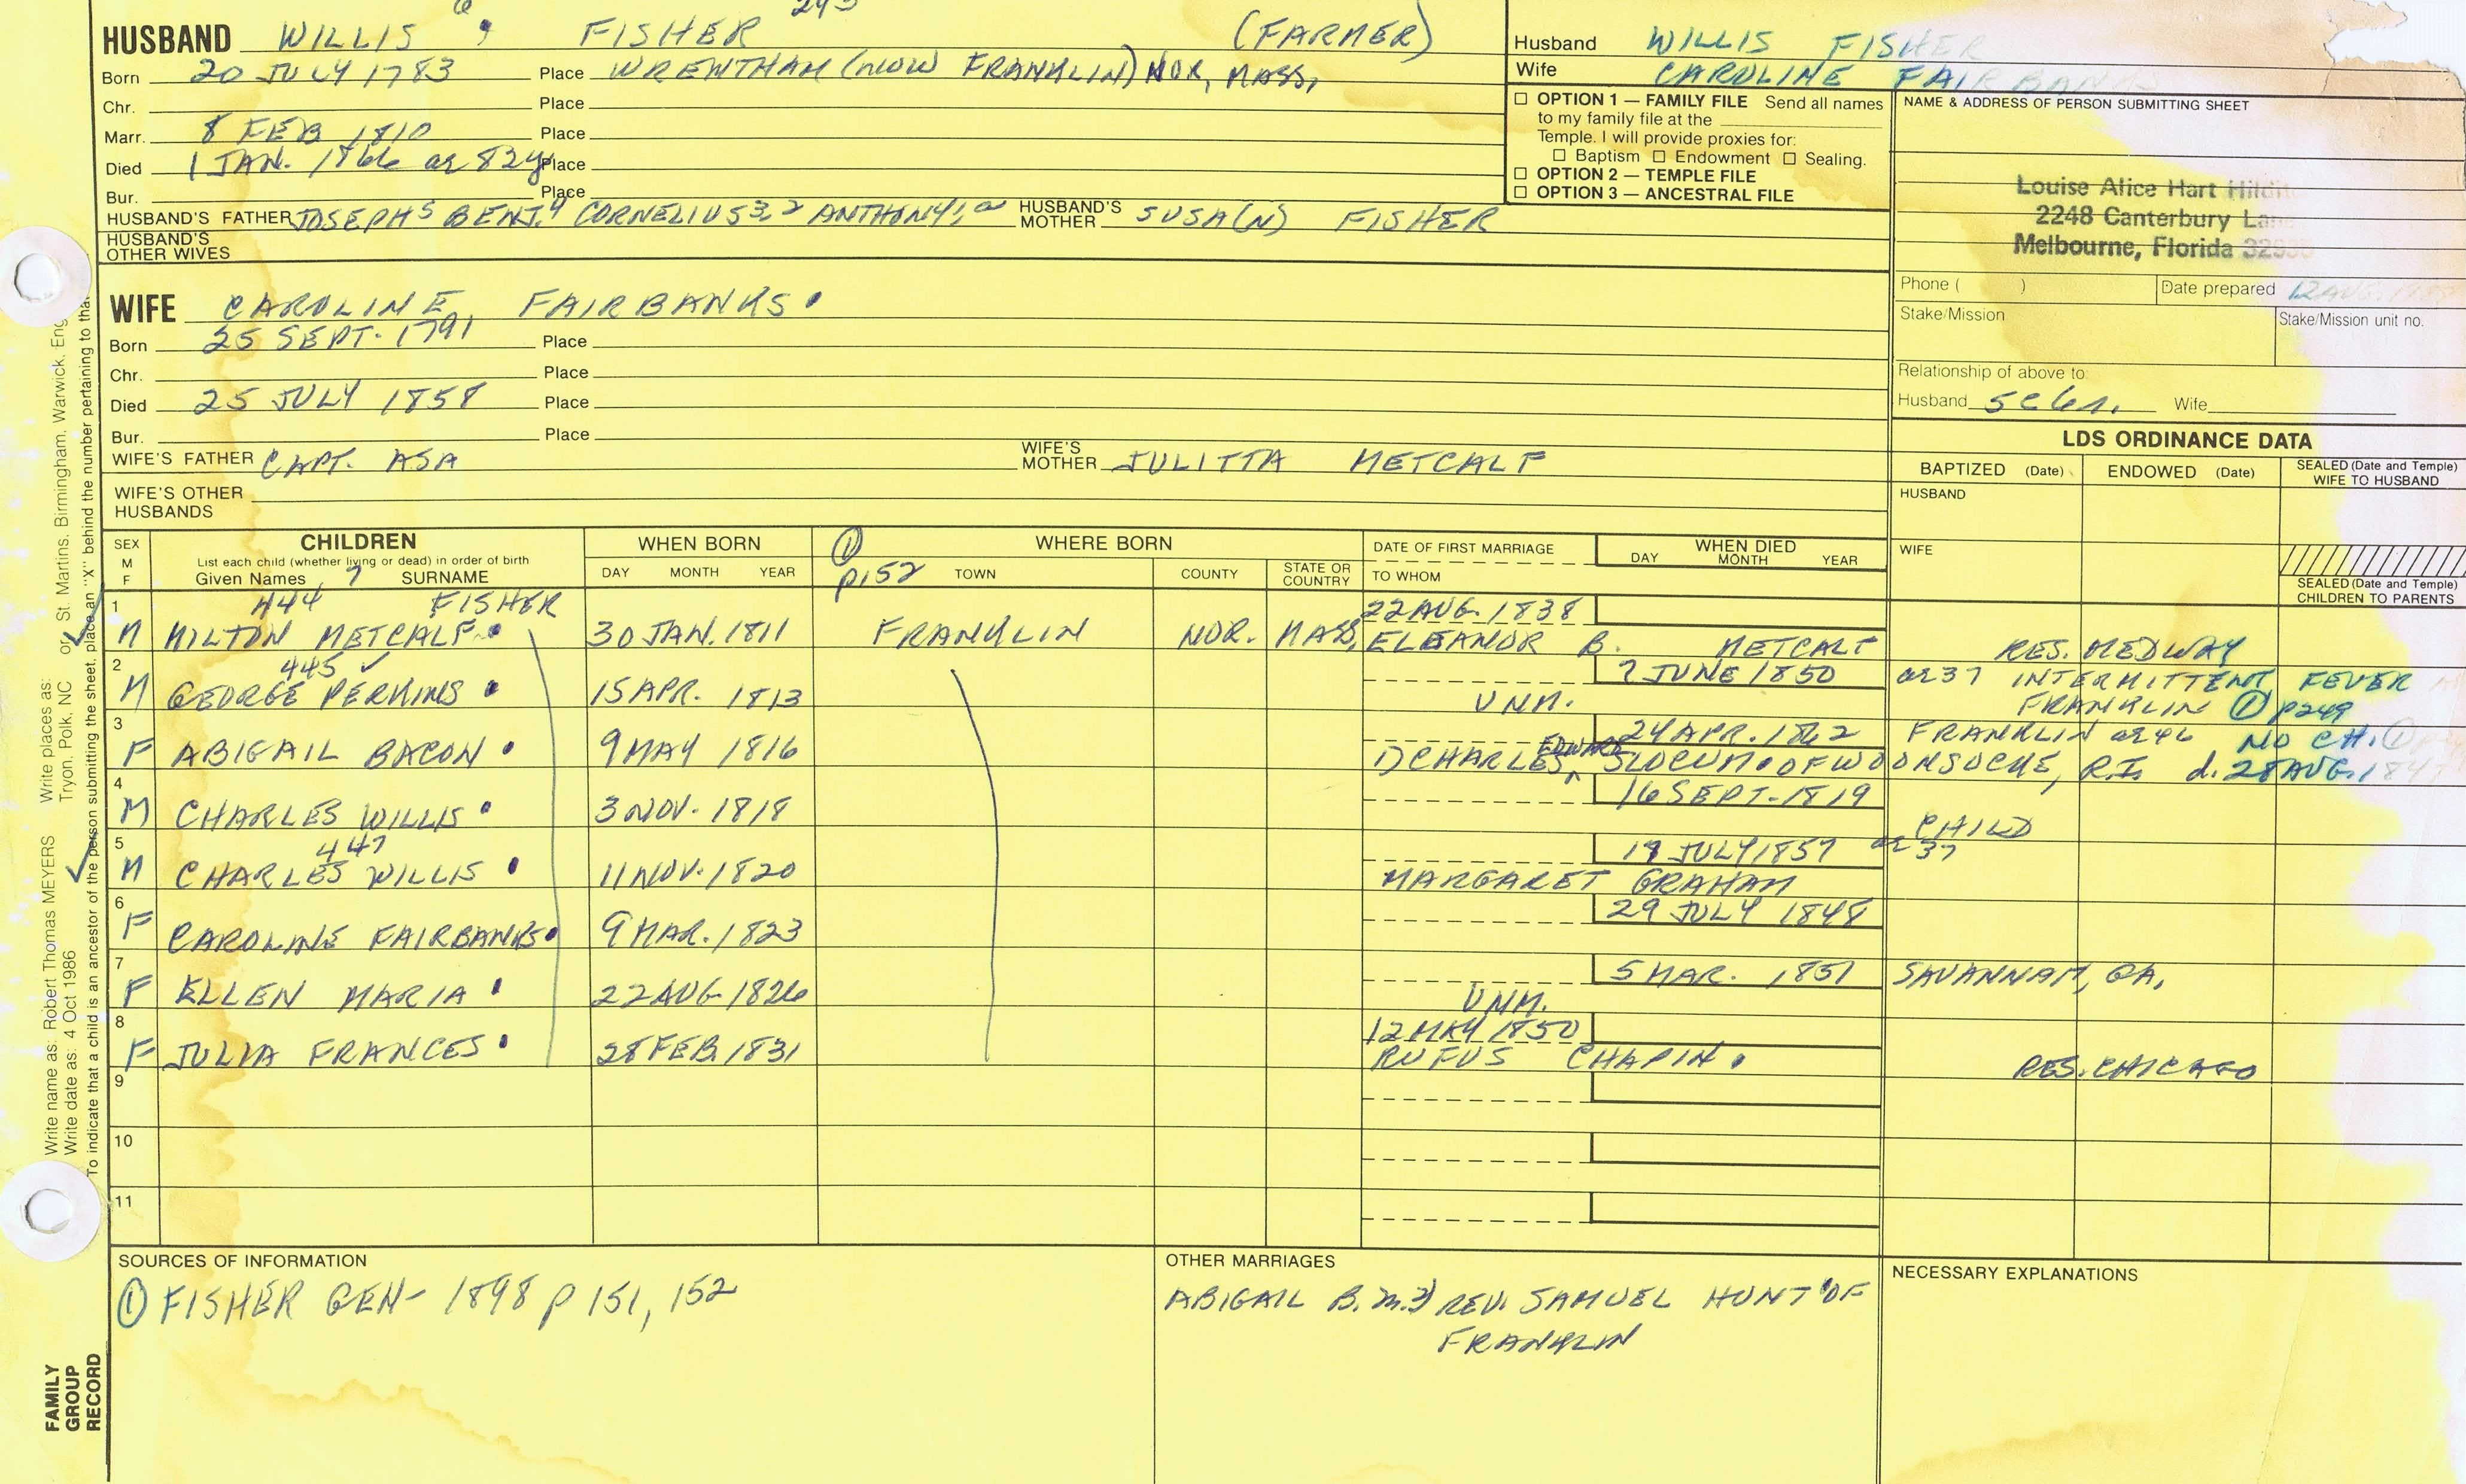 6 243
HUSBAND WILLIS FISHER (FARMER)
Born 20 JULY 1783 Place WRENTHAM (NOW FRANKLIN) NOR, MASS,
Chr. Place
Marr. 8 FEB 1810 Place
Died 1 JAN. 1866 ae 82y Place
Bur. Place
HUSBAND'S FATHER JOSEPH5 BENJ.4 CORNELIUS3,2 ANTHONY1, HUSBAND'S MOTHER SUSA(N) FISHER
HUSBAND'S OTHER WIVES
WIFE CAROLINE FAIRBANKS
Born 25 SEPT. 1791 Place
Chr. Place
Died 25 JULY 1858 Place
Bur. Place
WIFE'S FATHER CAPT. ASA WIFE'S MOTHER JULITTA METCALF
WIFE'S OTHER HUSBANDS
Husband WILLIS FISHER
Wife CAROLINE FAIRBAN
☐ OPTION 1 — FAMILY FILE Send all names
to my family file at the
Temple. I will provide proxies for:
☐ Baptism ☐ Endowment ☐ Sealing.
☐ OPTION 2 — TEMPLE FILE
☐ OPTION 3 — ANCESTRAL FILE
NAME & ADDRESS OF PERSON SUBMITTING SHEET
Louise Alice Hart
2248 Canterbury
Melbourne, Florida
Phone ( ) Date prepared 12 AUG.
Stake/Mission Stake/Mission unit no.
Relationship of above to:
Husband 5C6R. Wife
LDS ORDINANCE DATA
BAPTIZED (Date) ENDOWED (Date) SEALED (Date and Temple) WIFE TO HUSBAND
HUSBAND
WIFE
SEALED (Date and Temple)
CHILDREN TO PARENTS
SEX M F CHILDREN WHEN BORN ① p152 WHERE BORN DATE OF FIRST MARRIAGE WHEN DIED
List each child (whether living or dead) in order of birth
Given Names 7 SURNAME DAY MONTH YEAR TOWN COUNTY STATE OR COUNTRY TO WHOM DAY MONTH YEAR
1 444 FISHER 22 AUG. 1838
M MILTON METCALF 30 JAN. 1811 FRANKLIN NOR. MASS, ELEANOR B. METCALF RES. MEDWAY
2 445 ✓ 7 JUNE 1850 ae 37 INTERMITTENT FEVER
M GEORGE PERKINS 15 APR. 1813 UNM. FRANKLIN ① p249
3 24 APR. 1862 FRANKLIN ae 46 NO CH. ①
F ABIGAIL BACON 9 MAY 1816 1) CHARLES EDWARD SLOCUM OF WOONSOCKE, R.I. d. 28 AUG. 184
4 16 SEPT. 1819
M CHARLES WILLIS 3 NOV. 1818 CHILD
5 447 19 JULY 1857 ae 37
M CHARLES WILLIS 11 NOV. 1820 MARGARET GRAHAM
6 29 JULY 1848
F CAROLINE FAIRBANKS 9 MAR. 1823
7 5 MAR. 1851 SAVANNAH, GA,
F ELLEN MARIA 22 AUG 1826 UNM.
8 12 MAY 1850
F JULIA FRANCES 28 FEB. 1831 RUFUS CHAPIN RES. CHICAGO
9
10
11
SOURCES OF INFORMATION
① FISHER GEN- 1898 p 151, 152
OTHER MARRIAGES
ABIGAIL B. m. 2) REV. SAMUEL HUNT OF
FRANKLIN
NECESSARY EXPLANATIONS
Write name as: Robert Thomas MEYERS Write places as: St. Martins, Birmingham, Warwick, Eng
Write date as: 4 Oct 1986 Tryon, Polk, NC or
To indicate that a child is an ancestor of the person submitting the sheet, place an "X" behind the number pertaining to that
FAMILY
GROUP
RECORD